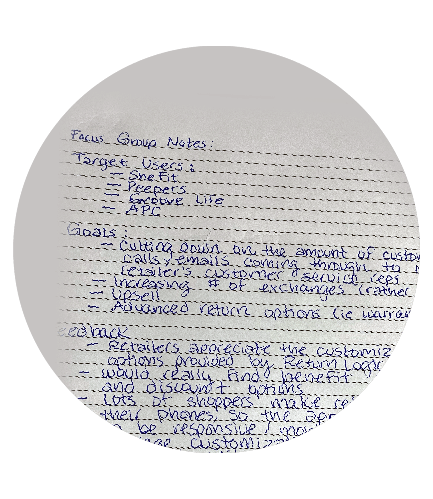 Focus Group Notes:
Target Users:
- SheFit
- Peepers
- Groove Life
- APC
Goals:
- Cutting down on the amount of custo
calls/emails coming through to
retailer's customer service reps
- Increasing # of exchanges (rather
- Upsell
- Advanced return options (ie warra
eedback
- Retailers appreciate the customiz
options provided by Return Logic
- would really find benefit
and discount options
- Lots of shoppers make re
their phones so the
be responsive/mo
customiz